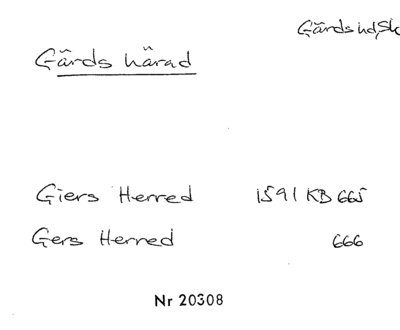 Gärds hd, Sk
Gärds härad
Giers Herred 1591 KB 665
Gers Herred 666
Nr 20308